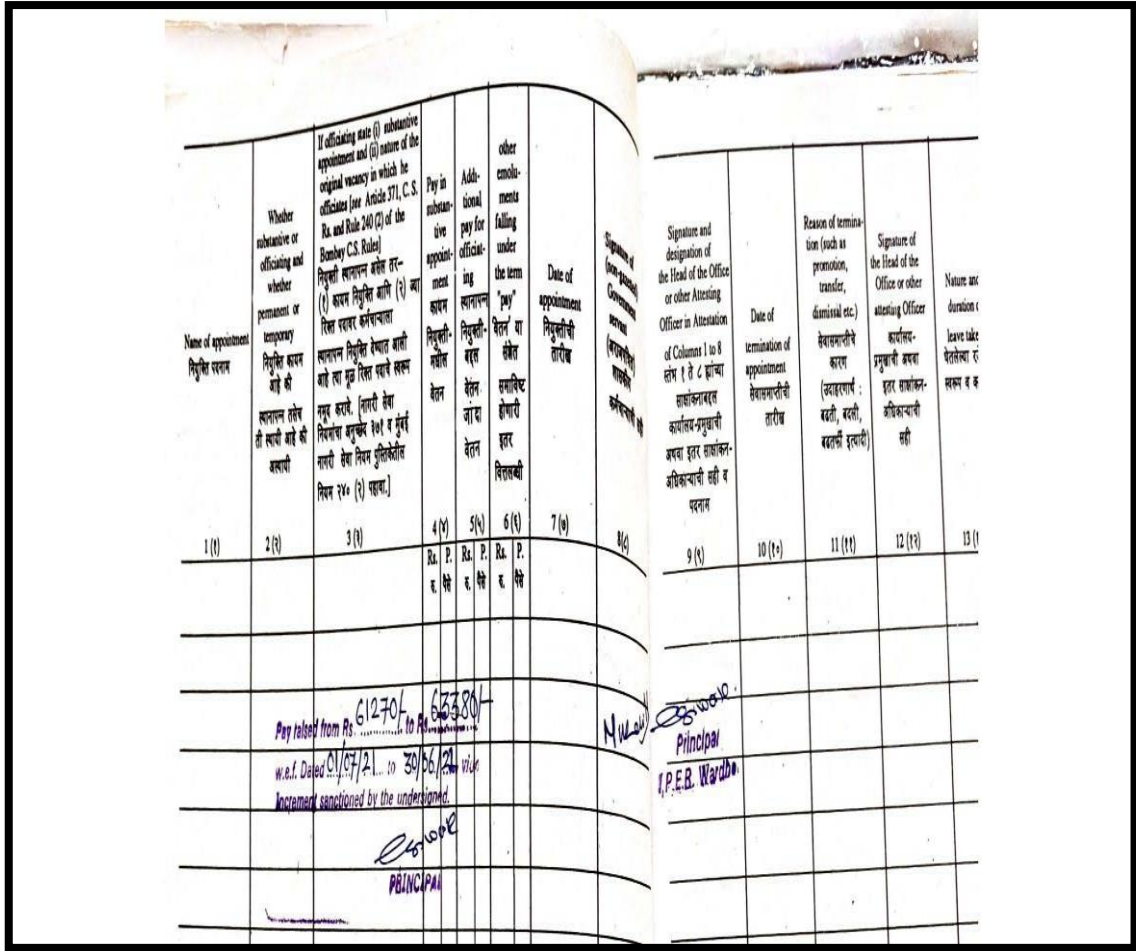 Name of appointment
नियुक्ति पदनाम
1 (१)
Whether
substantive or
officiating and
whether
permanent or
temporary
नियुक्ति कायम
आहे की
स्थानापन्न तसेच
ती स्थायी आहे की
अस्थायी
2 (२)
If officiating state (i) substantive
appointment and (ii) nature of the
original vacancy in which he
officiates [see Article 371, C. S.
Rs. and Rule 240 (2) of the
Bombay C.S. Rules]
नियुक्ती स्थानापन्न असेल तर–
(१) कायम नियुक्ति आणि (२) ज्या
रिक्त पदावर कर्मचाऱ्याला
स्थानापन्न नियुक्ति देण्यात आली
आहे त्या मूळ रिक्त पदाचे स्वरूप
नमूद करावे. [नागरी सेवा
नियमांचा अनुच्छेद ३७१ व मुंबई
नागरी सेवा नियम पुस्तिकेतील
नियम २४० (२) पहावा.]
3 (३)
Pay in
substan-
tive
appoint-
ment
कायम
नियुक्ती-
मधील
वेतन
4 (४)
Rs. P.
रु. पैसे
Addi-
tional
pay for
officiat-
ing
स्थानापन्न
नियुक्ती-
बद्दल
वेतन
जादा
वेतन
5(५)
Rs. P.
रु. पैसे
other
emolu-
ments
falling
under
the term
"pay"
वेतन या
संज्ञेत
समाविष्ट
होणारी
इतर
वित्तलब्धी
6 (६)
Rs. P.
रु. पैसे
Date of
appointment
नियुक्तीची
तारीख
7 (७)
Signature of
(non-gazetted)
Government
servant
(अराजपत्रित)
शासकीय
कर्मचाऱ्याची सही
8(८)
Signature and
designation of
the Head of the Office
or other Attesting
Officer in Attestation
of Columns 1 to 8
स्तंभ १ ते ८ ह्यांच्या
साक्षांकनाबद्दल
कार्यालय-प्रमुखाची
अथवा इतर साक्षांकन-
अधिकाऱ्याची सही व
पदनाम
9 (९)
Date of
termination of
appointment
सेवासमाप्तीची
तारीख
10 (१०)
Reason of termina-
tion (such as
promotion,
transfer,
dismissal etc.)
सेवासमाप्तीचे
कारण
(उदाहरणार्थ :
बढती, बदली,
बडतर्फी इत्यादी)
11 (११)
Signature of
the Head of the
Office or other
attesting Officer
कार्यालय-
प्रमुखाची अथवा
इतर साक्षांकन-
अधिकाऱ्याची
सही
12 (१२)
Nature and
duration
leave take
घेतलेल्या
स्वरूप व
13
Pay raised from Rs. 61270/- to Rs. 63380/-
w.e.f. Dated 01/07/21 to 30/06/22 vide
Increment sanctioned by the undersigned.
PRINCIPAL
Principal
I.P.E.B. Wardha.